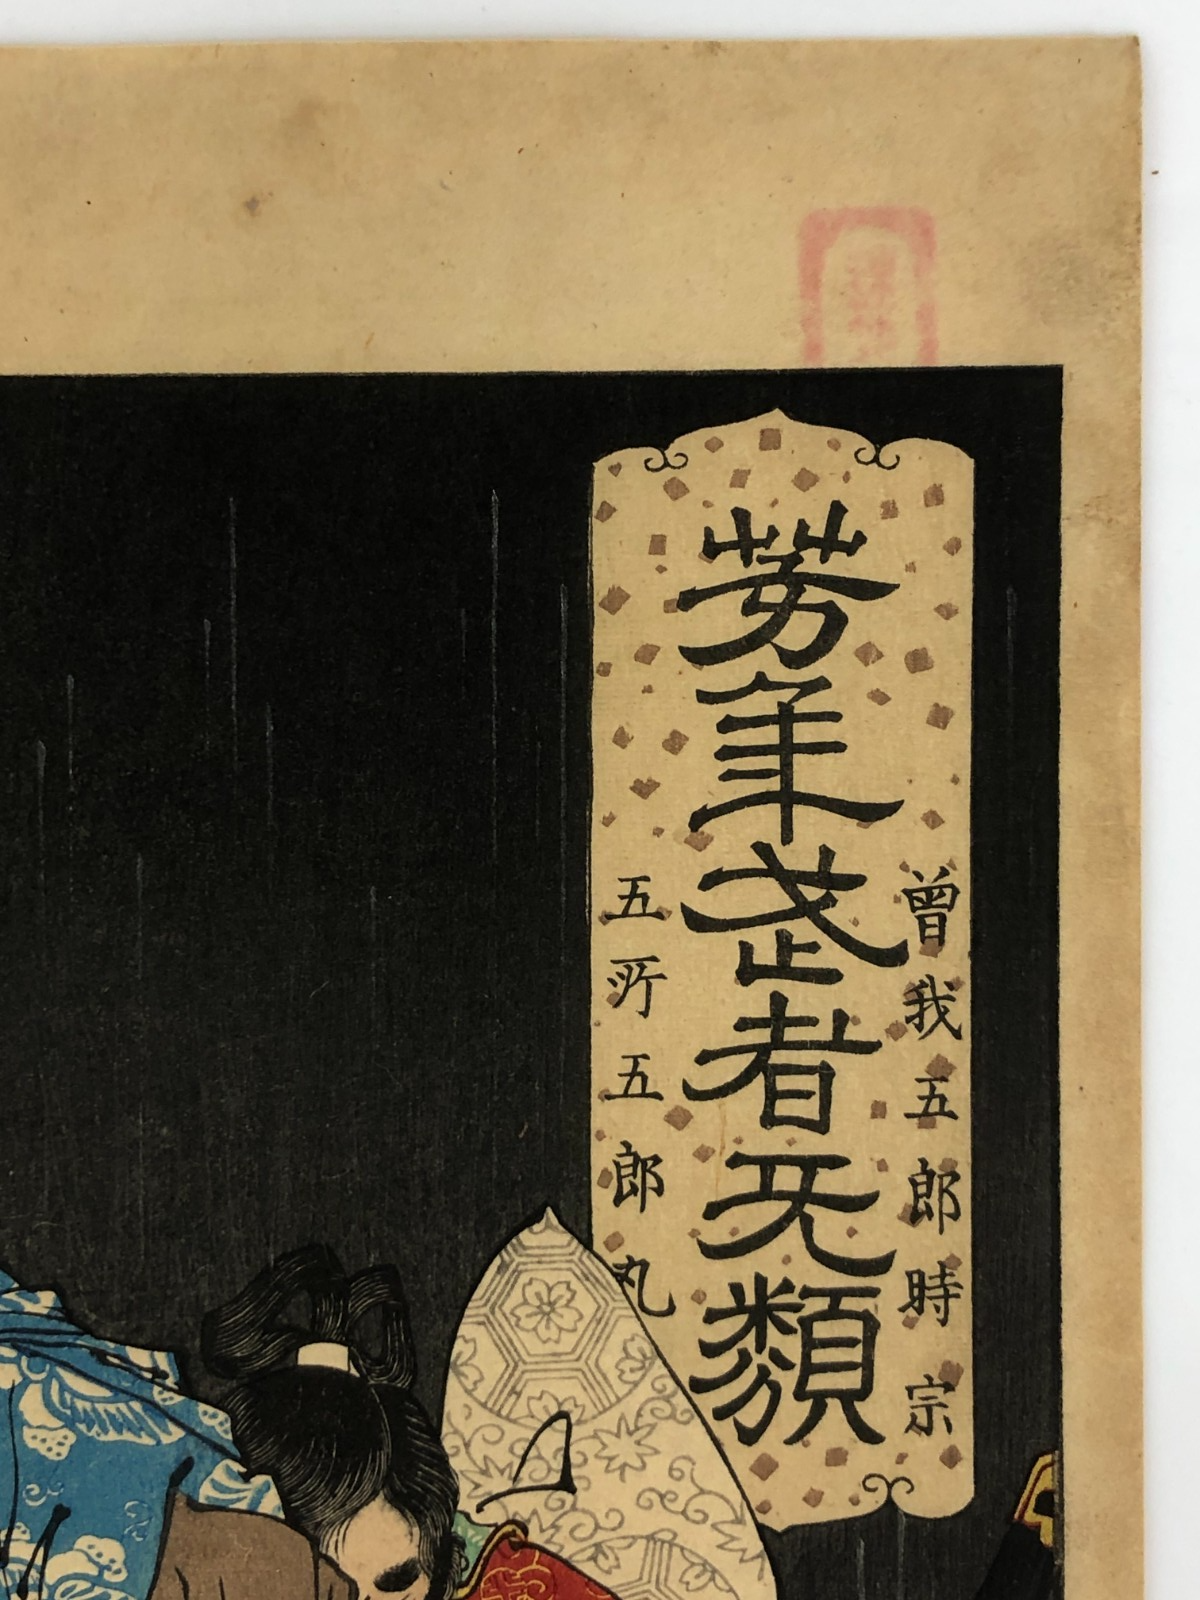 曽我五郎時宗
芳年武者无類
五所五郎丸